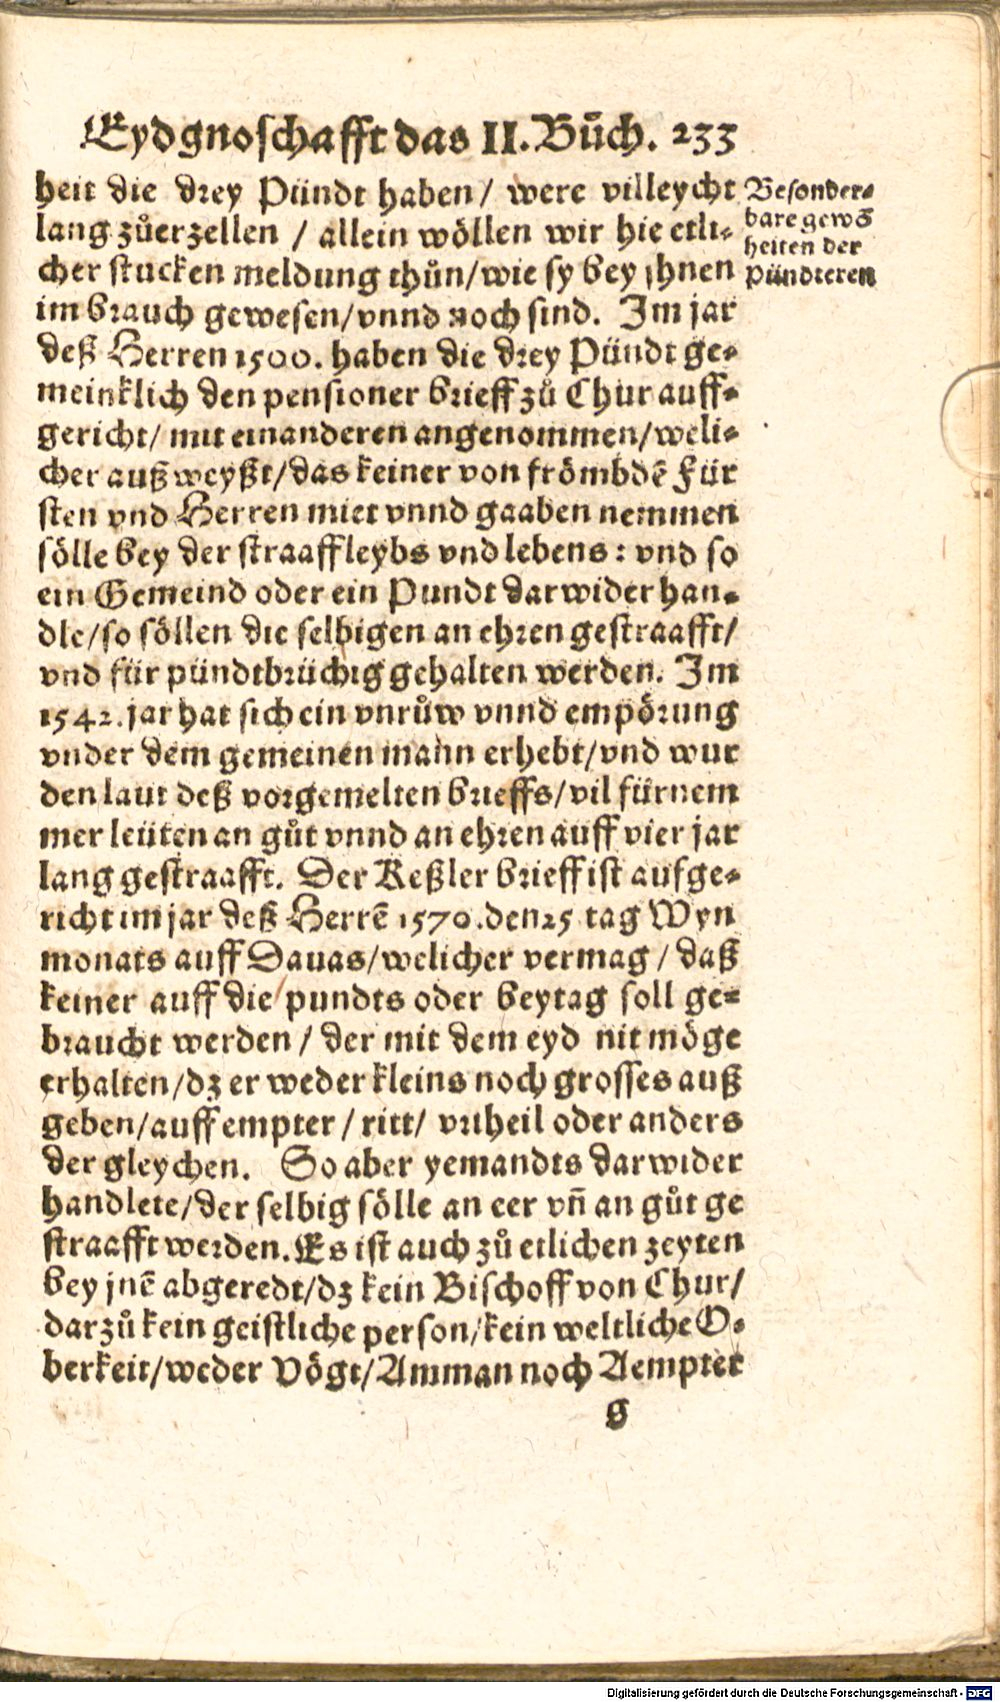 Eydgnoschafft das II. Bůch. 233
heit die drey Pündt haben / were villeycht
lang zůerzellen / allein wöllen wir hie etli-
cher stucken meldung thůn/wie sy bey jhnen
im brauch gewesen/vnnd noch sind. Im jar
deß Herren 1500. haben die drey Pündt ge-
meinklich den pensioner brieff zů Chur auff-
gericht/ mit einanderen angenommen/weli-
cher außweyßt/das keiner von frömbdē Für
sten vnd Herren miet vnnd gaaben nemmen
sölle bey der straaff leybs vnd lebens: vnd so
ein Gemeind oder ein Pundt darwider han-
dle/so söllen die selbigen an ehren gestraafft/
vnd für pündtbrüchig gehalten werden. Im
1542. jar hat sich ein vnrůw vnnd empörung
vnder dem gemeinen mann erhebt/vnd wur
den laut deß vorgemelten brieffs/vil fürnem
mer leüten an gůt vnnd an ehren auff vier jar
lang gestraafft. Der Keßler brieff ist aufge-
richt im jar deß Herrē 1570. den 25 tag Wyn
monats auff Dauas/welicher vermag / daß
keiner auff die pundts oder beytag soll ge-
braucht werden / der mit dem eyd nit möge
erhalten/dz er weder kleins noch grosses auß
geben/auff empter / ritt/ vrtheil oder anders
der gleychen. So aber yemandts darwider
handlete/der selbig sölle an eer vñ an gůt ge
straafft werden. Es ist auch zů etlichen zeyten
bey jnē abgeredt/dz kein Bischoff von Chur/
darzů kein geistliche person/kein weltliche O-
berkeit/weder Vögt/Amman noch Aempter
g
Besonder-
bare gewō
heiten der
Pündteren
Digitalisierung gefördert durch die Deutsche Forschungsgemeinschaft - DFG